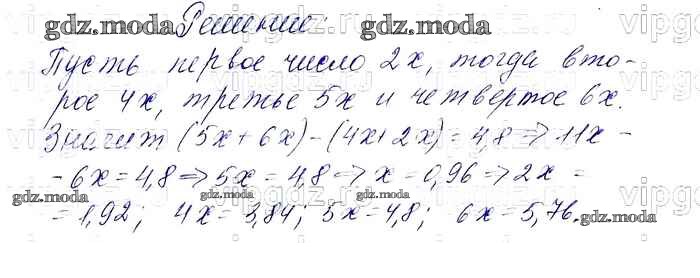 Решение:
Пусть первое число 2x, тогда вто-
рое 4x, третье 5x и четвертое 6x.
Значит (5x + 6x) - (4x + 2x) = 4,8 => 11x -
- 6x = 4,8 => 5x = 4,8 => x = 0,96 => 2x =
= 1,92; 4x = 3,84; 5x = 4,8; 6x = 5,76.
gdz.moda
gdz.moda
gdz.moda
gdz.moda
gdz.moda
gdz.moda